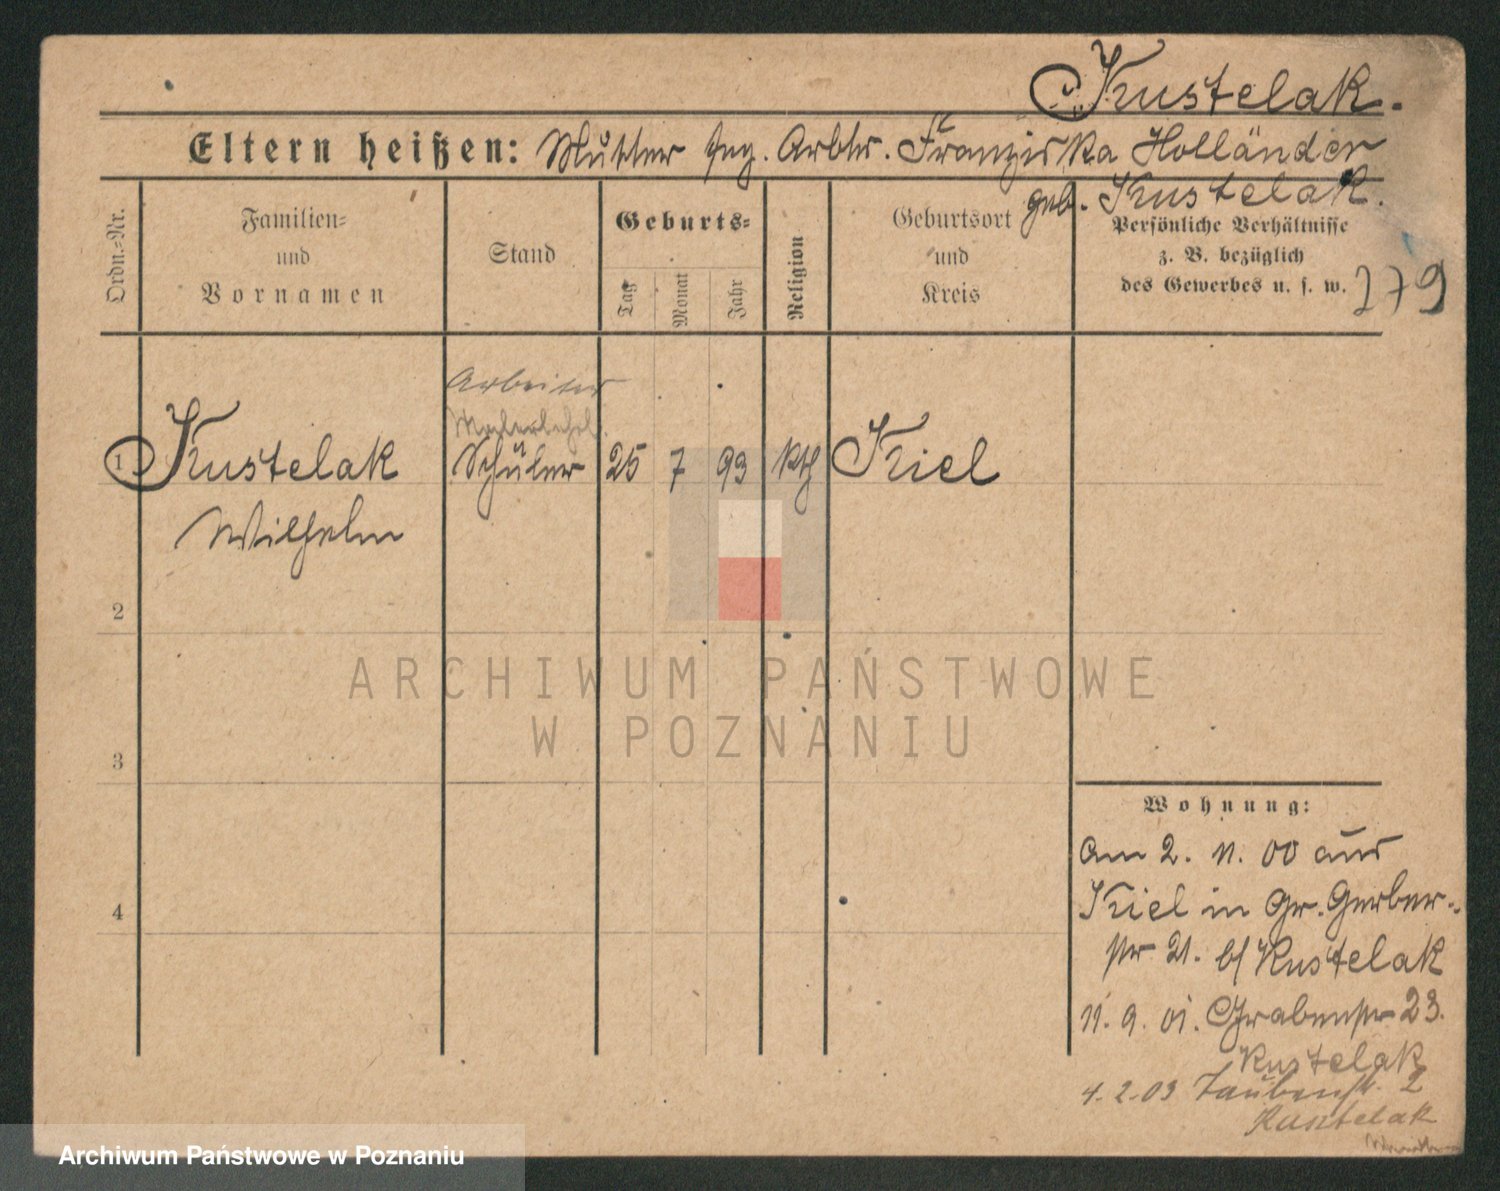 Kustelak.
Eltern heißen: Mutter Arbtr. Franziska Holländer
geb. Kustelak.
Ordn.-Nr.
Familien-
und
Vornamen
Stand
Geburts-
Tag
Monat
Jahr
Religion
Geburtsort
und
Kreis
Persönliche Verhältnisse
z. B. bezüglich
des Gewerbes u. s. w.
279
Arbeiter
1 Kustelak Schüler 25 7 93 kth Kiel
Wilhelm
2
3
4
Wohnung:
Am 2. 11. 00 aus
Kiel in Gr. Gerber-
str 21. b/ Kustelak
11. 9. 01. Grabenstr 23.
Kustelak
4. 2. 03 Taubenstr. 2
Kustelak
ARCHIWUM PAŃSTWOWE
W POZNANIU
Archiwum Państwowe w Poznaniu